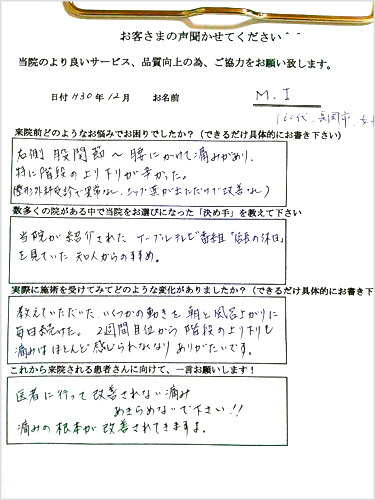 お客さまの声聞かせてください^^
当院のより良いサービス、品質向上の為、ご協力をお願い致します。
日付 H30年12月 お名前 M.I
(60代、長岡市、女性
来院前どのようなお悩みでお困りでしたか？（できるだけ具体的にお書き下さい）
右側 股関節〜腰にかけて痛みがあり、
特に階段の上り下りが辛かった。
(整形外科受診で異常なし、シップ薬が出ただけで改善なし)
数多くの院がある中で当院をお選びになった「決め手」を教えて下さい
当院が紹介された ケーブルテレビ番組「院長の休日」
を見ていた 知人からのすすめ。
実際に施術を受けてみてどのような変化がありましたか？（できるだけ具体的にお書き下
教えていただいた いくつかの動きを 朝と風呂上がりに
毎日続けた。2週間目位から 階段の上り下りも
痛みはほとんど感じられなくなり ありがたいです。
これから来院される患者さんに向けて、一言お願いします！
医者に行って改善されない痛み
あきらめないで下さい!!
痛みの根本が改善されてきますよ。